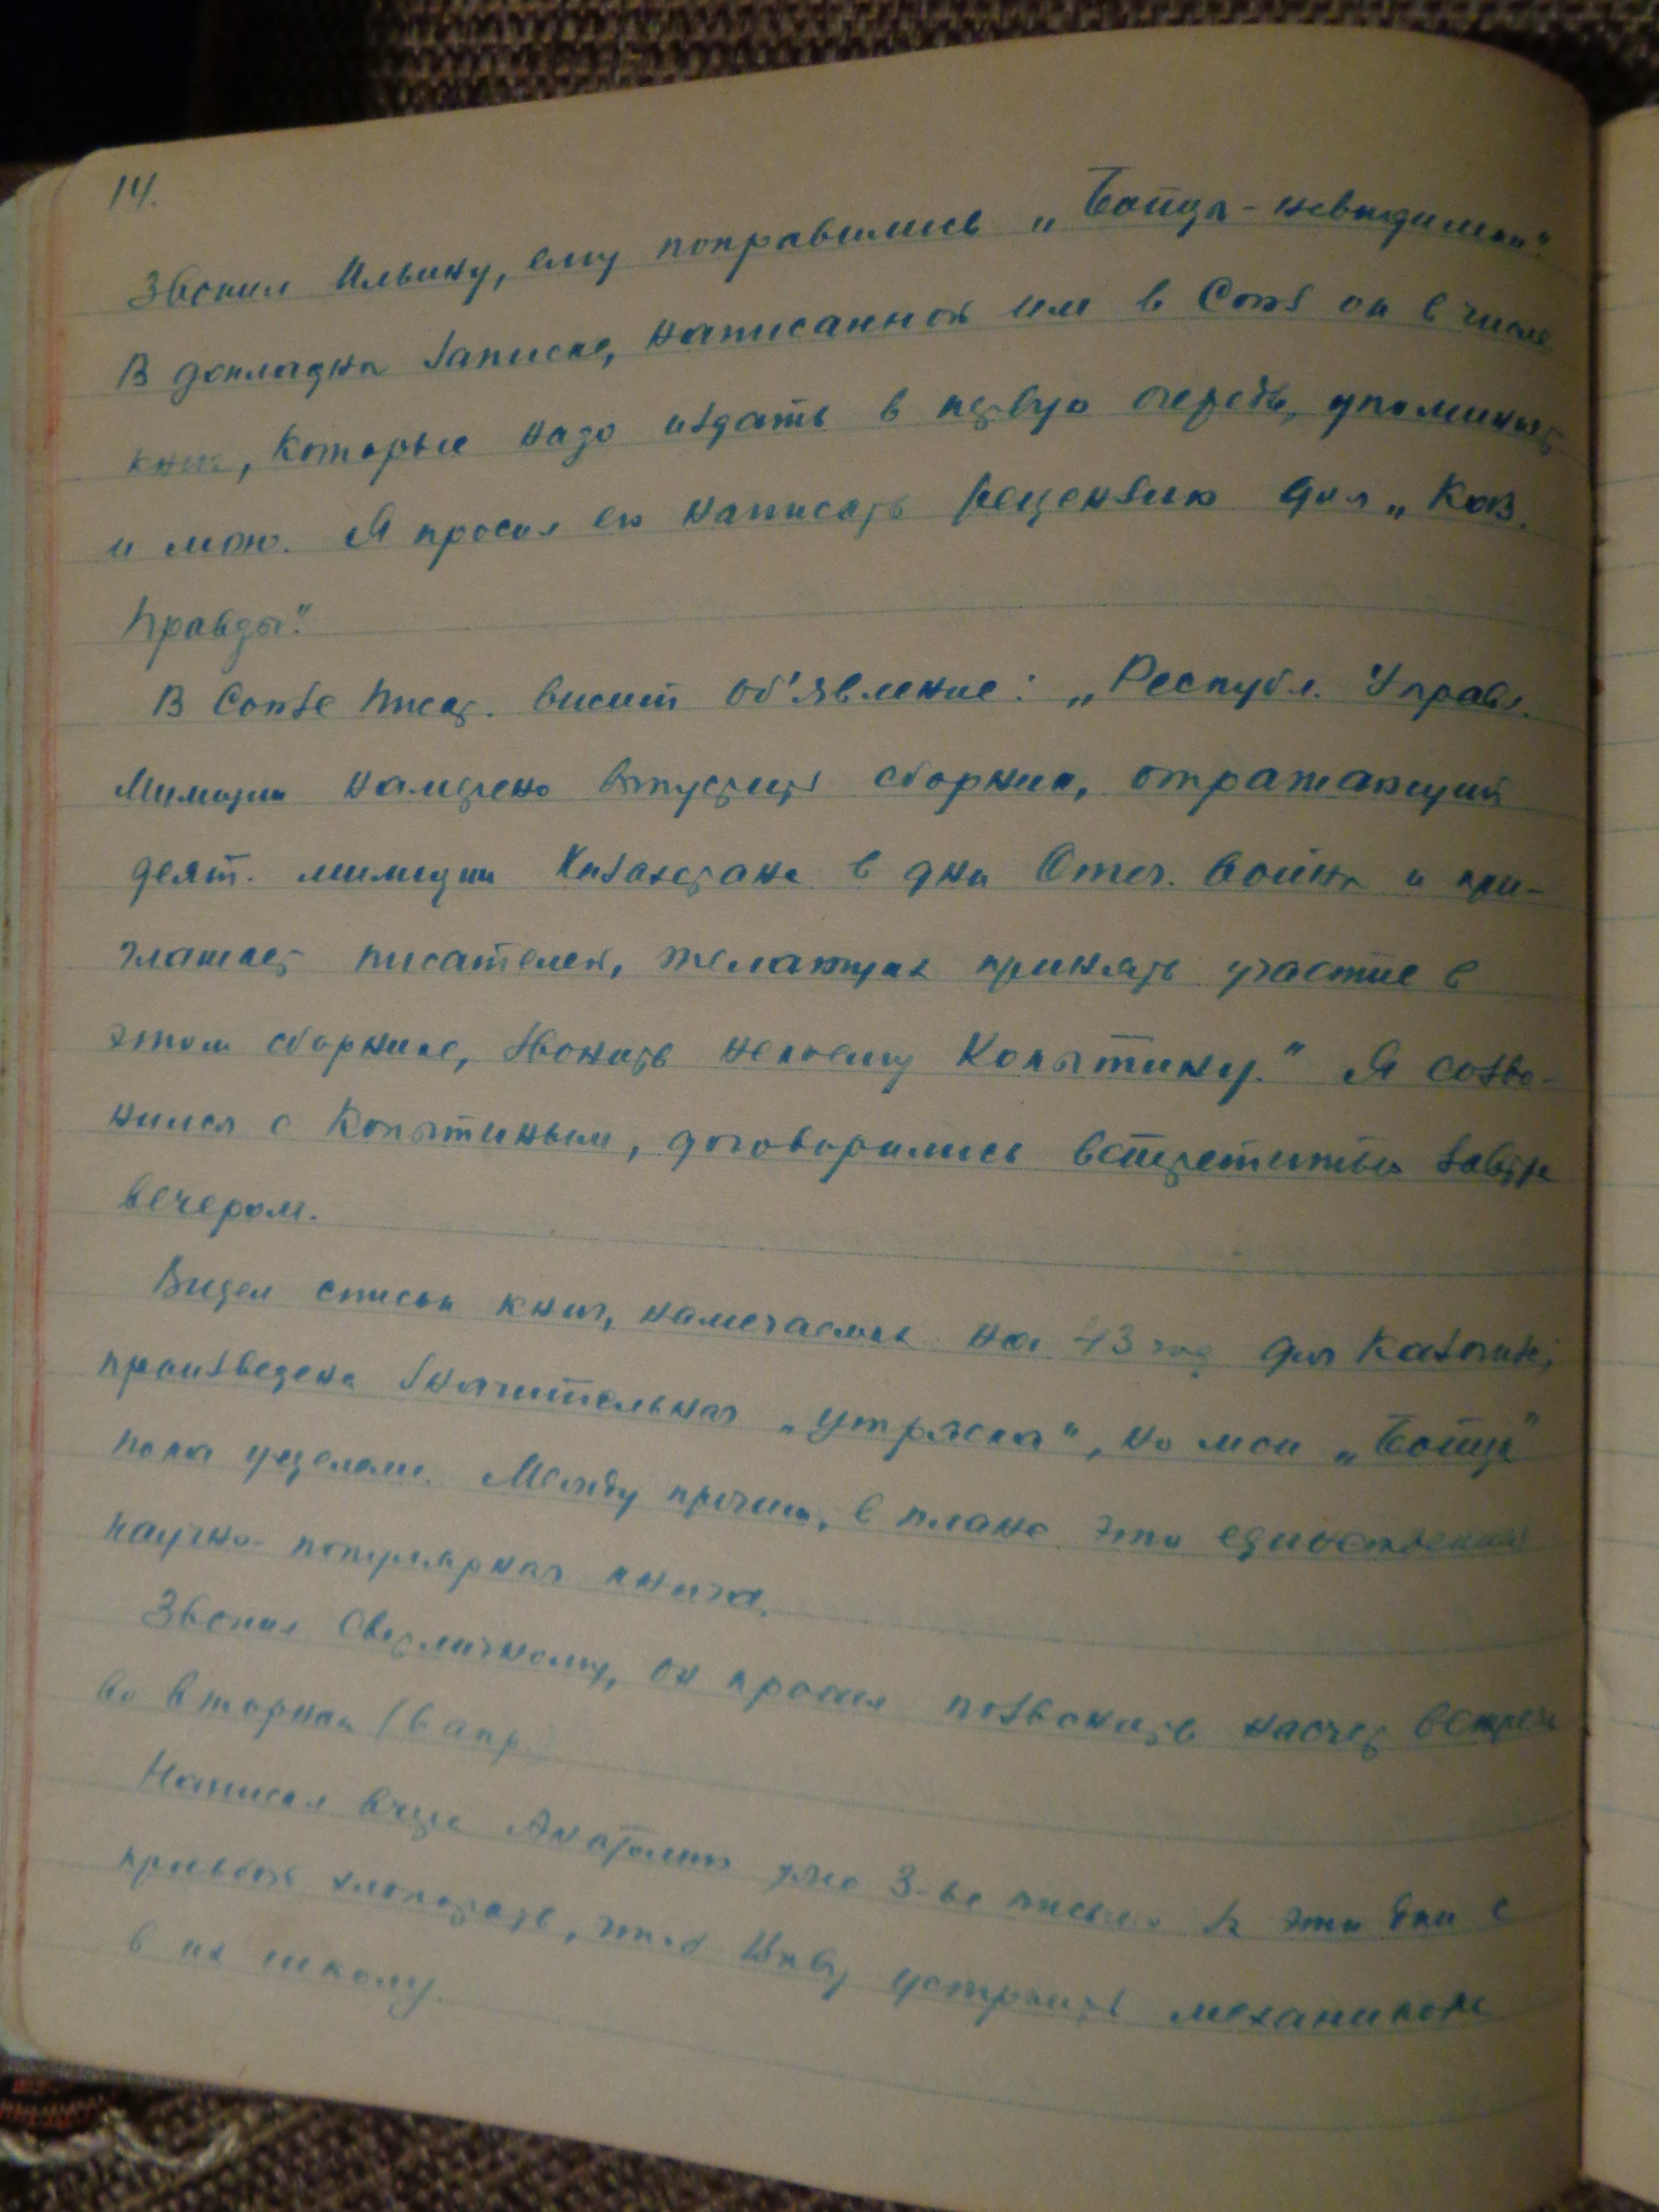 14.
Звонил Ильину, ему понравились „Бойцы-невидимки".
В докладной записке, написанной им в Союз он в числе
книг, которые надо издать в первую очередь, упоминает
и мою. Я просил его написать рецензию для „Каз.
Правды".
В Союзе Писат. висит об'явление: „Республ. Управл.
Милиции намерено выпустить сборник, отражающий
деят. милиции Казахстана в дни Отеч. войны и при-
глашает писателей, желающих принять участие в
этом сборнике, звонить некоему Копытину." Я созво-
нился с Копытиным, договорились встретиться завтра
вечером.
Видел список книг, намечаемых на 43 год для Казогиза;
произведена значительная „утряска", но мои „Бойцы"
пока уцелели. Между прочим, в плане это единственная
научно-популярная книга.
Звонил Сверличному, он просил позвонить насчет встречи
во вторник (
Написал вчера Анатолию уже 3-ье письмо за эти дни с
просьбой хлопотать, чтоб Вивву устроить механиком
в их школу.